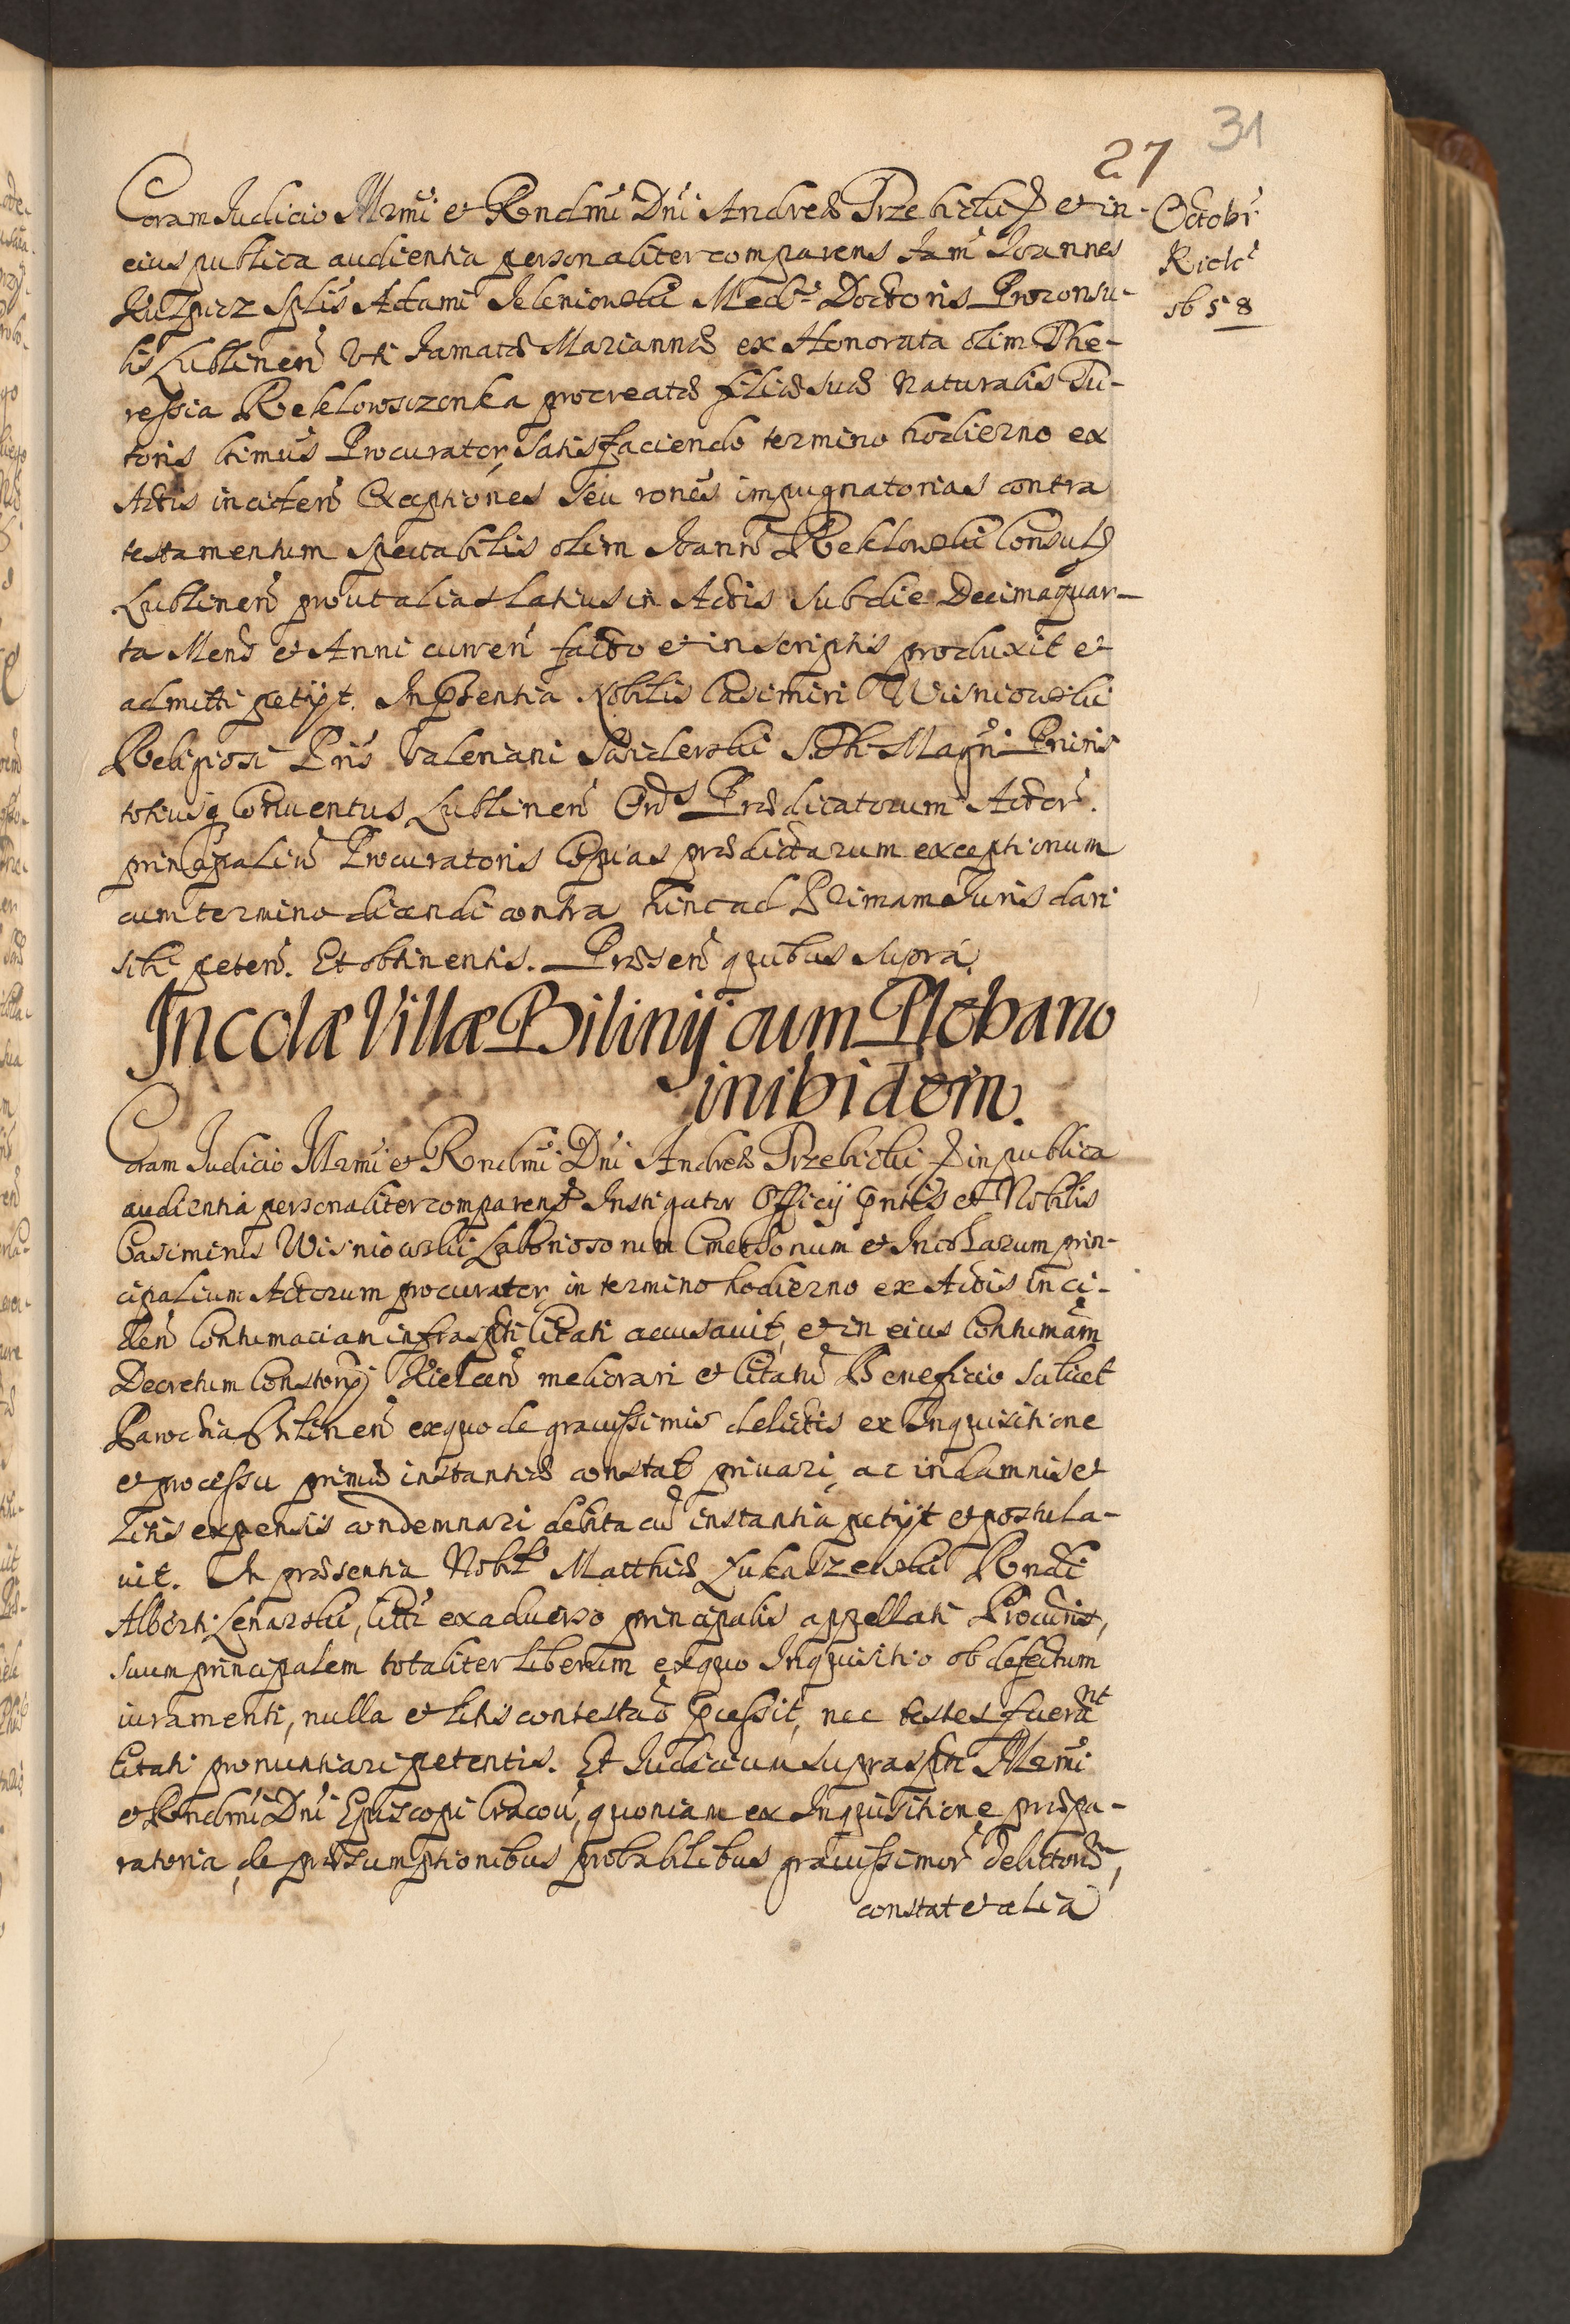 31
27
Coram Judicio Illrmi et Rndmi Dni Andreæ Trzebicki et in
eius publica audientia personaliter comparens Fam Joannes
Splis Adami Jeleniowski Med: Doctoris Proconsu-
lis Lublinen Uti Famatæ Mariannæ ex Honorata olim The-
ressia Reklowsczonka procreatæ filiæ suæ Naturalis Tu-
toris ltimus Procurator, satisfaciendo termino hodierno ex
Actis inciden Exceptiones seu rones impugnatorias contra
testamentum spectabilis olim Joann Reklowski Consul
Lublinen prout alias latius in Actis sub die Decimaquar-
ta Mens et Anni curren facto et in scriptis produxit et
admitti petijt. In Pntia Nobilis Casimiri Wisniowski
Religiosi Pris Valeriani S.Th. Magri Prioris
totiusq Conventus Lublinen Ord Prædicatorum Actor.
principaliu Procuratoris Copias prædictarum exceptionum
cum termino dicendi contra hinc ad Primam Juris dari
sibi peten. Et obtinentis. Præsen quibus supra.
Octobr
Kielc
sb 58
Incolæ Villæ Bilinij cum Plebano
inibidem.
Coram Judicio Illrmi et Rndmi Dni Andreæ Trzebicki in publica
audientia personaliter comparen Instigator Officij Pntis et Nobilis
Casimirus Wisniowski Laboriosorum Cmethonum et Incolarum prin-
cipalium Actorum procurator, in termino hodierno ex Actis inci-
den Contumaciam infrascpti Citati accusavit, et in eius Contumam
Decretum Constorij Kielcen meliorari et Citatu Beneficio scilicet
Parochia Bilinen exquo de gravissimis delictis ex Inquisitione
et processu primæ instantiæ constat privari, ac in damnis et
litis expensis condemnari debita cu instantia petijt et postula-
vit. In præsentia Nobil Matthiæ Lukaszewski Rndi
Alberti Lenarski, Citti exadverso principalis appellati Procuris,
suum principalem totaliter liberum exquo Inquisitio ob defectum
iuramenti, nulla et litis contestao pcessit, nec testes fuerunt
Citati pronuntiari petentis. Et Judicium suprascpti Illrmi
et Rndmi Dni Episcopi Cracov, quoniam ex Inquisitione præpa-
ratoria, de præsumptionibus probabilibus gravissimor delictor,
constat et alia